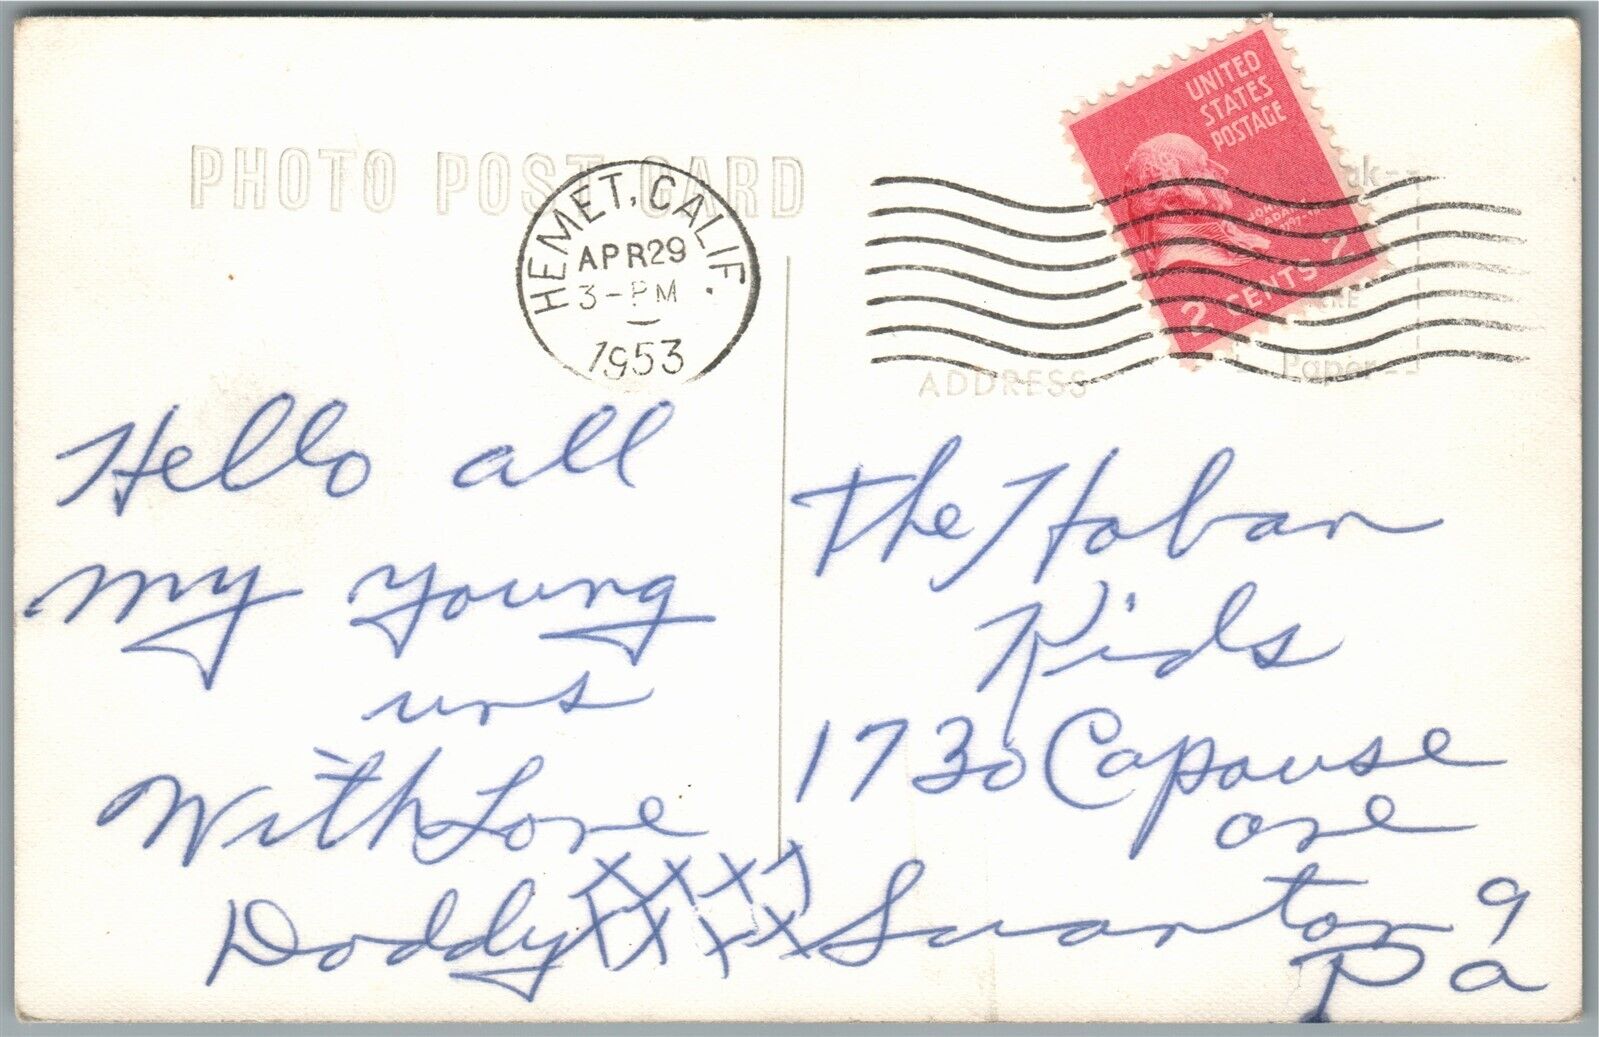 PHOTO POST CARD
HEMET, CALIF.
APR 29
3-PM
1953
UNITED
STATES
POSTAGE
JOHN
ADAMS
2 CENTS 2
ADDRESS
Paper
Hello all
my young
uns
With Love
Daddy XXXX
XXXXX
The Hoban
Kids
1730 Capouse
ave
Scranton 9
Pa